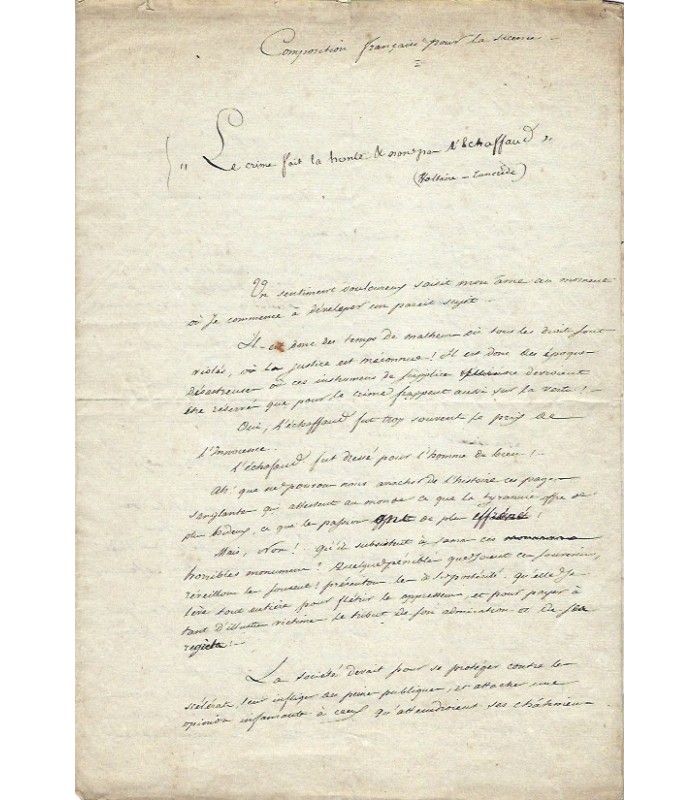 Composition française pour la licence
"Le crime fait la honte & non pas l'échaffaud"
(Voltaire - Tancrède)
Un sentiment douloureux saisit mon âme au moment
où je commence à développer un pareil sujet.
Il est donc des temps de malheur où tous les droits sont
violés, où la justice est méconnue! Il est donc des époques
désastreuses où ces instruments de supplice qui devroient
être réservé que pour le crime frappent aussi sur la vertu!
Oui, l'échaffaud fut trop souvent le prix de
l'innocence.
L'échafaud fut dressé pour l'homme de bien!
Ah! que ne pouvons nous arracher de l'histoire ces pages
sanglantes qui attestent au monde ce que la tyrannie offre de
plus hideux, ce que les passions ont de plus effréné!
Mais, Non! qu'ils subsistent à jamais ces
horribles monumens! Quelque pénibles que soient ces souvenirs,
réveillons les souvent! présentons les à la postérité. qu'elle se
lève tout entière pour flétrir les oppresseurs, et pour payer à
tant d'illustres victimes le tribut de son admiration et de ses
regrets!
La société devait pour se protéger contre les
scélérats, leur infliger des peines publiques, et attacher une
opinion infamante à ceux qu'attendroient ses châtimens